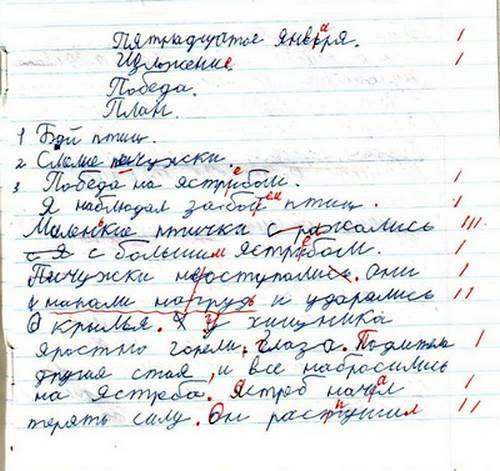 Пятнадцатое янвря.
Изложение
Победа.
План.
1 Бой птиц.
2 Смелые пичужки.
3 Победа на ястрибом.
Я наблюдал за бой птиц.
Маленкие птички с ражались
с я с большим ястрибом.
Пичужки не оступались. Они
напали на грудь и ударялись
о крылья. У хищника
яростно горели глаза. Подлетела
другая стая, и все набросились
на ястреба. Ястреб начел
терять силу. Он растушил